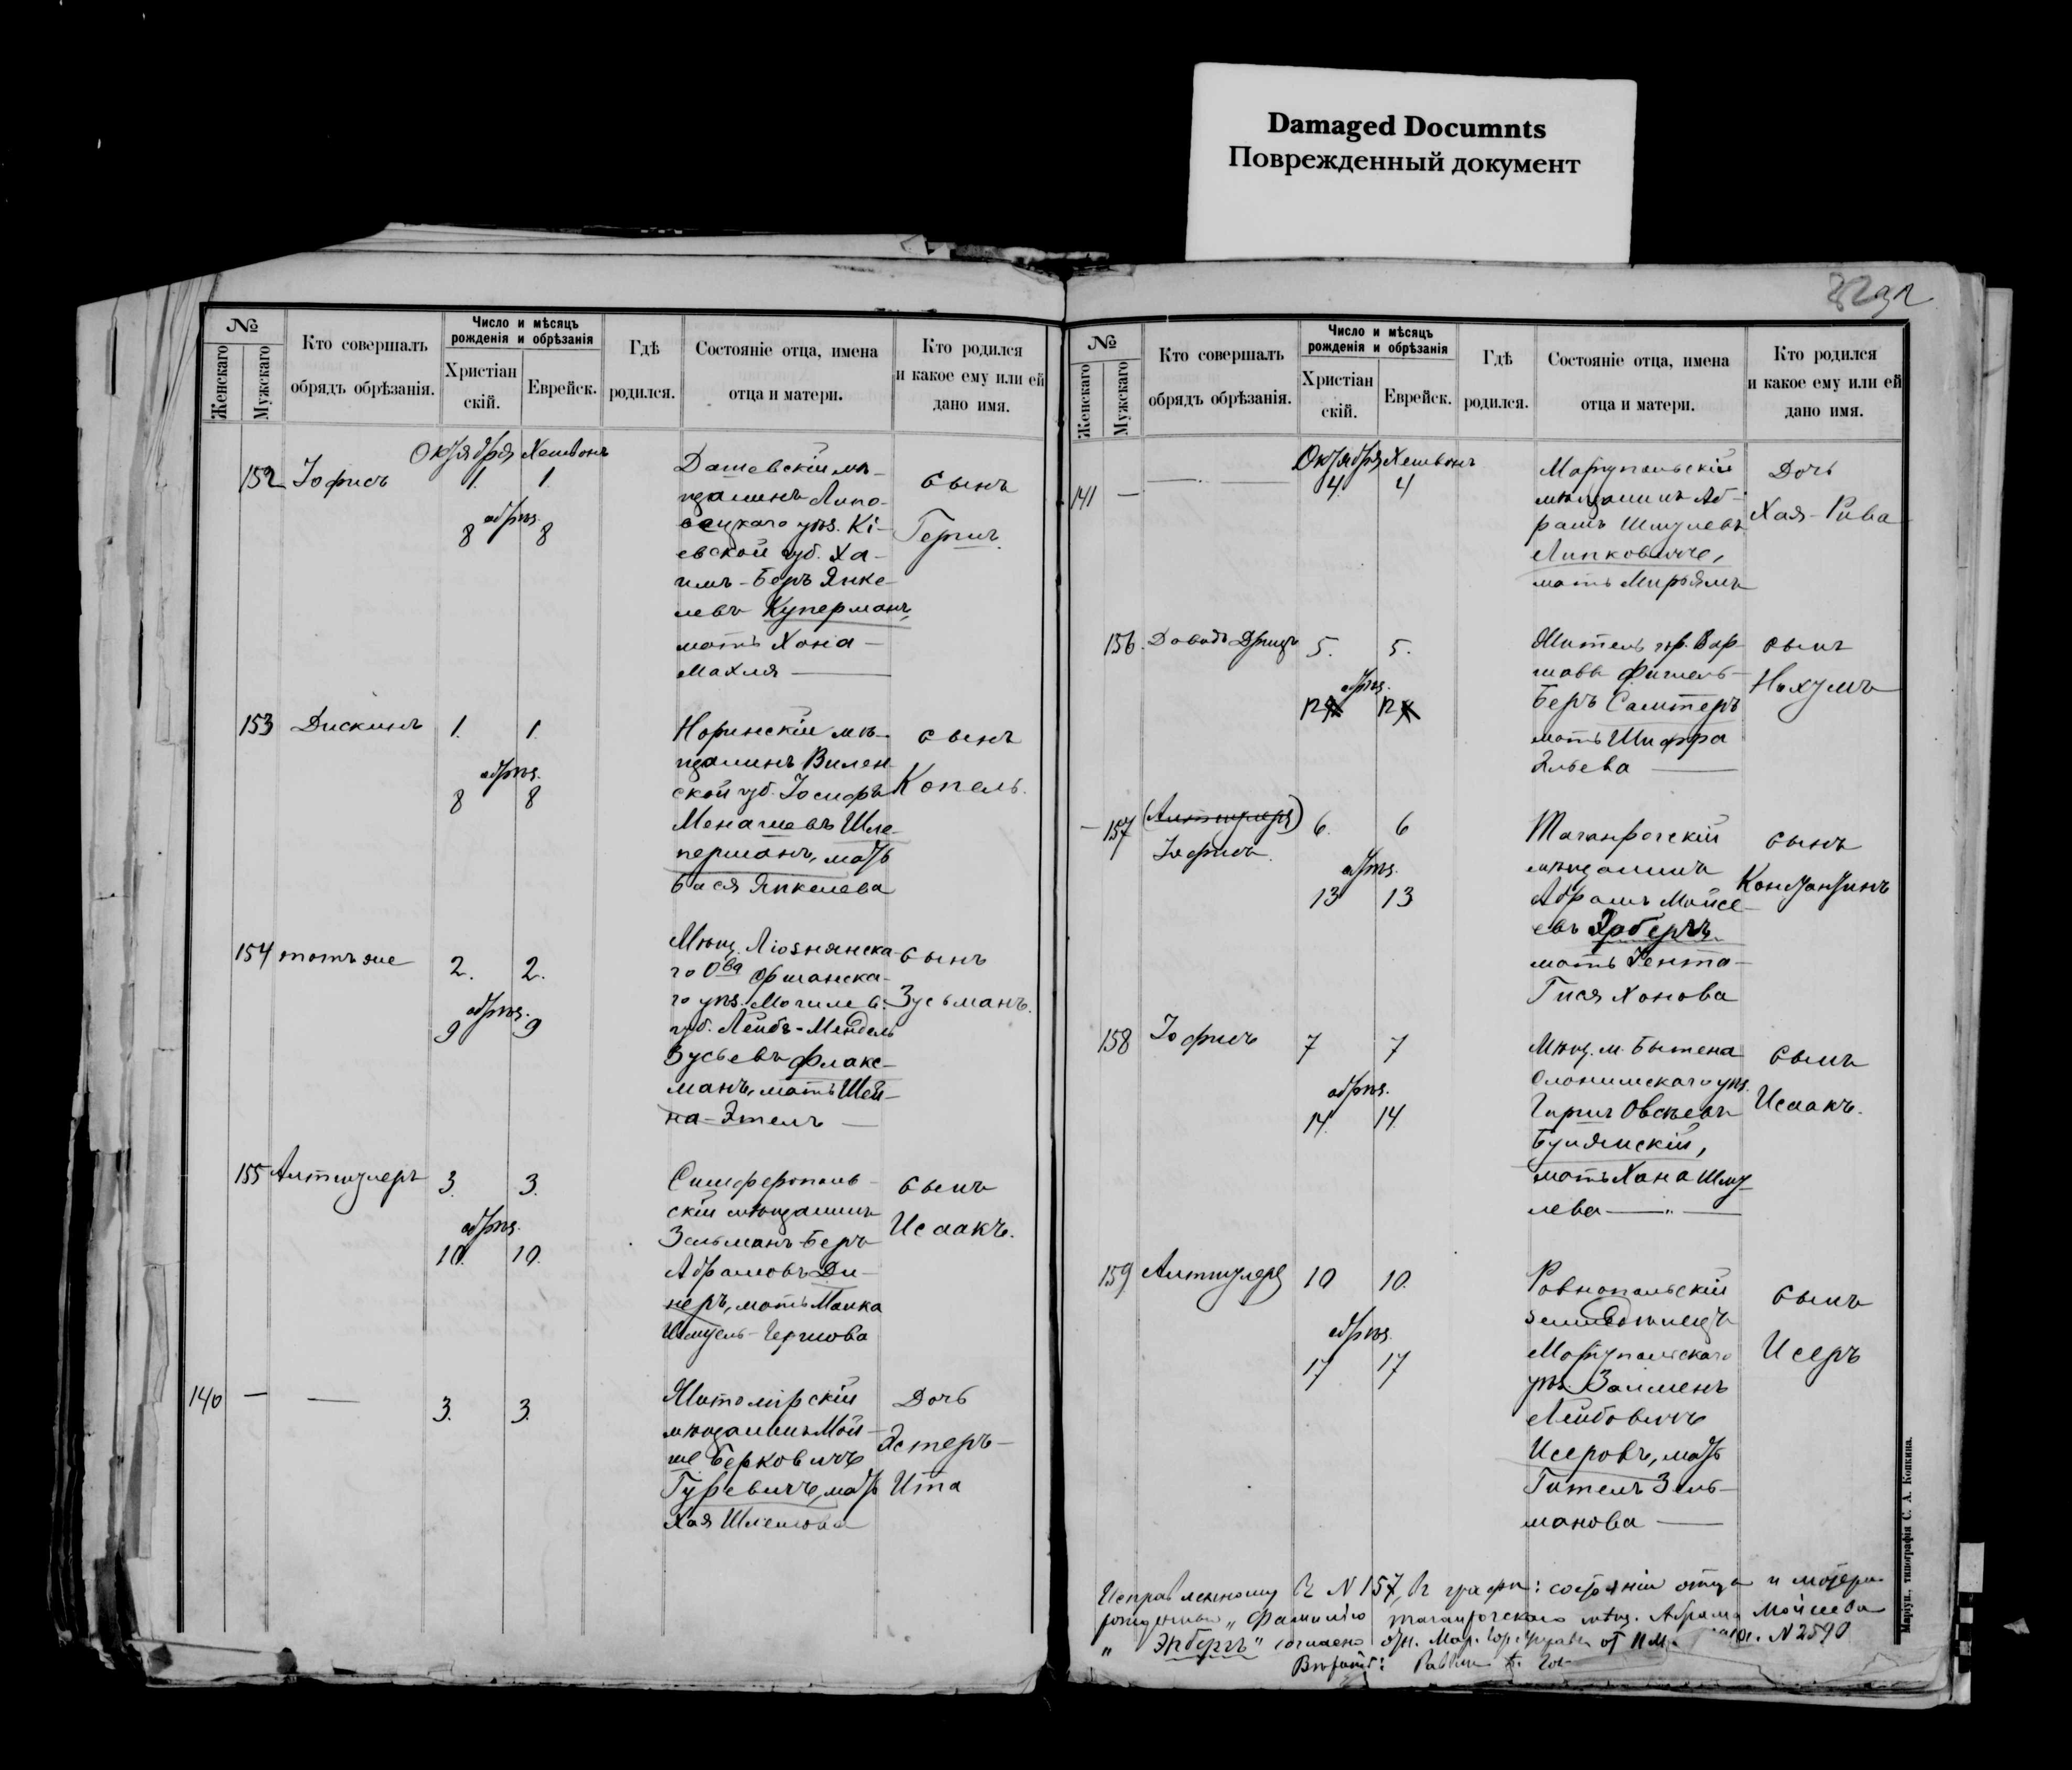 Damaged Documnts
Поврежденный документ
№
Женскаго
Мужскаго
Кто совершалъ
обрядъ обрѣзанія.
Число и мѣсяцъ
рожденія и обрѣзанія
Христіан
скій.
Еврейск.
Гдѣ
родился.
Состояніе отца, имена
отца и матери.
Кто родился
и какое ему или ей
дано имя.
Октября Хешвонъ
152 Іофисъ 1. 1.
обрѣз.
8 8
Дашевскій мѣ-
щанинъ Липо-
вецкаго уѣз. Кі-
евской губ. Ха-
имъ-Беръ Янке-
левъ Куперманъ,
мать Хана-
Махля
сынъ
Гершъ.
153 Дискинъ 1. 1.
обрѣз.
8 8
Норинскій мѣ-
щанинъ Вилен
ской губ. Іосифъ
Менашевъ Шле-
перманъ, мать
Бася Янкелева
сынъ
Копель.
154 тотъ же 2. 2.
обрѣз.
9 9
Мѣщ. Ліознянска-
го О-ва Оршанска-
го уѣз. Могилев.
губ. Лейба-Мендель
Зусьевъ Флакс-
манъ, мать Шей-
на-Этелъ
сынъ
Зусьманъ.
155 Альтшулеръ 3. 3.
обрѣз.
10. 10.
Симферополь-
скій мѣщанинъ
Зельманъ-Беръ
Абрамовъ Ди-
неръ, мать Малка
Шмуель-Гершова
сынъ
Исаакъ.
140 — — 3. 3.
Житомірскій
мѣщанинъ Мой-
ше Берковичъ
Гуревичъ, мать
Хая Шлемова
Дочь
Эстеръ-
Ита
82
№
Женскаго
Мужскаго
Кто совершалъ
обрядъ обрѣзанія.
Число и мѣсяцъ
рожденія и обрѣзанія
Христіан
скій.
Еврейск.
Гдѣ
родился.
Состояніе отца, имена
отца и матери.
Кто родился
и какое ему или ей
дано имя.
Октября Хешвонъ
141 — — 4. 4
Маріупольскій
мѣщанинъ Аб-
рамъ Шмулевъ
Липковичъ,
мать Мирьямъ
Дочь
Хая-Рива
156. Давидъ 5. 5.
обрѣз.
12 12
Житель гор. Вар-
шавы Фишель-
Беръ Самтеръ
мать Шифра
Эльева
сынъ
Нахумъ
157 (Альтшулеръ) 6. 6
Іофисъ.
обрѣз.
13 13
Таганрогскій
мѣщанинъ
Абрамъ Мойсе-
евъ
мать Гента-
Гися Хонова
сынъ
Константинъ
158 Іофисъ 7 7
обрѣз.
14. 14.
Мѣщ. м. Бытена
Слонимскаго уѣз.
Гиршъ Овсѣевъ
мать Хана Шму-
лева
сынъ
Исаакъ.
159 Альтшулеръ 10 10.
обрѣз.
17 17
Ровнопольскій
земледѣлецъ
Маріупольскаго
уѣз. Залменъ
Лейбовичъ
Исеровъ, мать
Гителъ Зель-
манова
сынъ
Исеръ
Исправленному въ N 157, въ графѣ: состояніи отца и матери
рожденный „ фамилію таганрогскаго мѣщ. Абрама Мойсеева
„ Эпбергъ" согласно отн. Мар. Гор. Управы от N 2590
Маріуп., типографія С. А. Копкина.